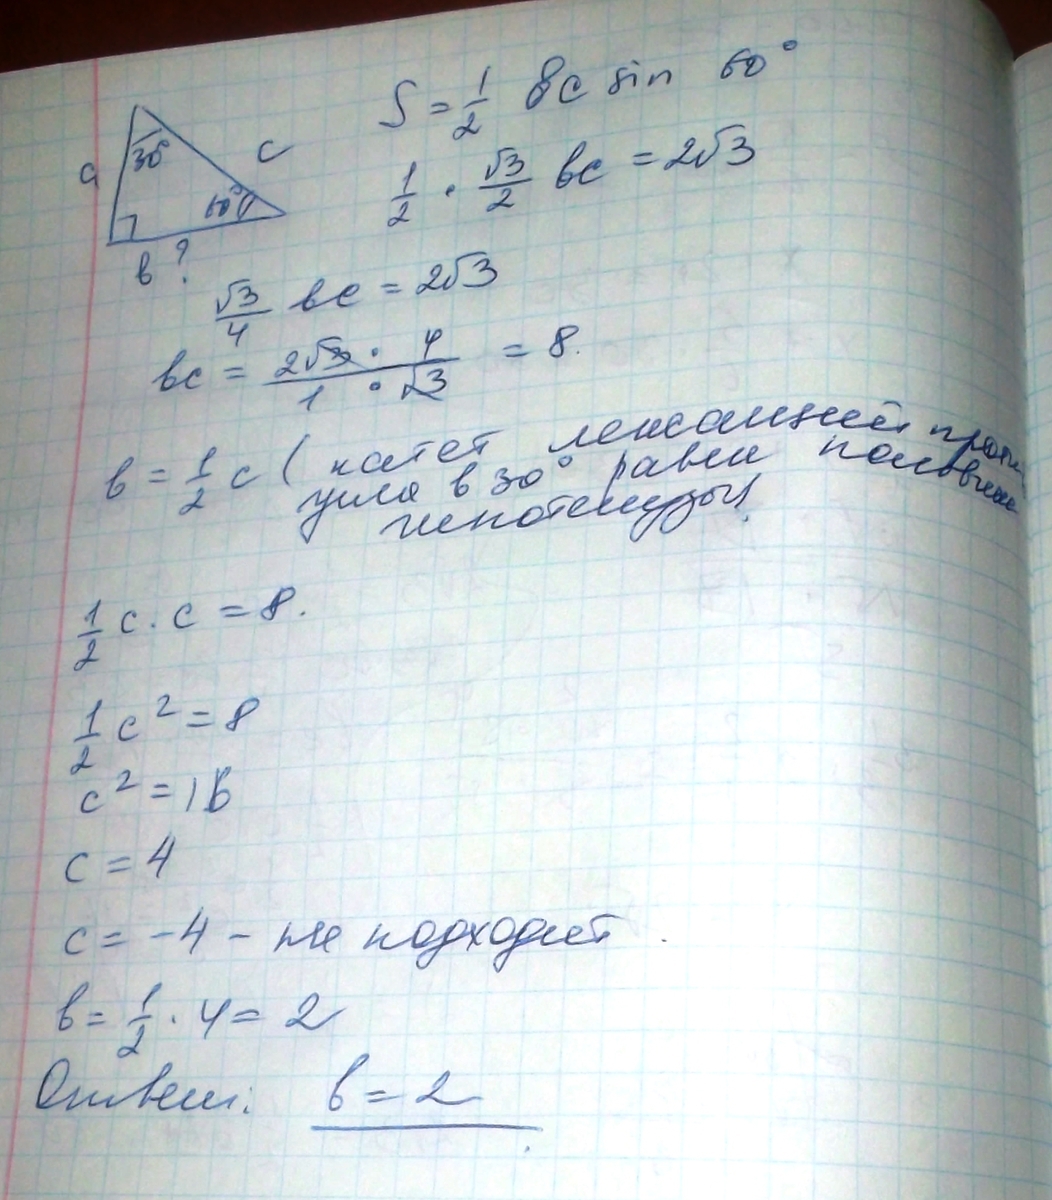 S = 1/2 вc sin 60°
a 30° c 60° в ?
1/2 · √3/2 вc = 2√3
√3/4 вc = 2√3
вc = 2√3 · 4 / 1 · √3 = 8.
в = 1/2 c ( катет лежащий против
угла в 30° равен половине
гипотенузы)
1/2 c · c = 8.
1/2 c² = 8
c² = 16
c = 4
c = -4 - не подходит.
в = 1/2 · 4 = 2
Ответ: в = 2